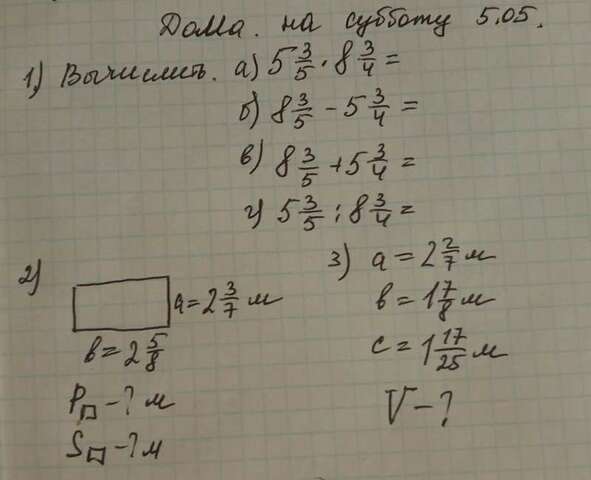 Дома. на субботу 5.05.
1) Вычислить. а) 5 3/5 · 8 3/4 =
б) 8 3/5 - 5 3/4 =
в) 8 3/5 + 5 3/4 =
г) 5 3/5 : 8 3/4 =
2)
a = 2 3/7 м
в = 2 5/8
P▭ - ? м
S▭ - ? м
3) a = 2 2/7 м
в = 1 7/8 м
c = 1 17/25 м
V - ?